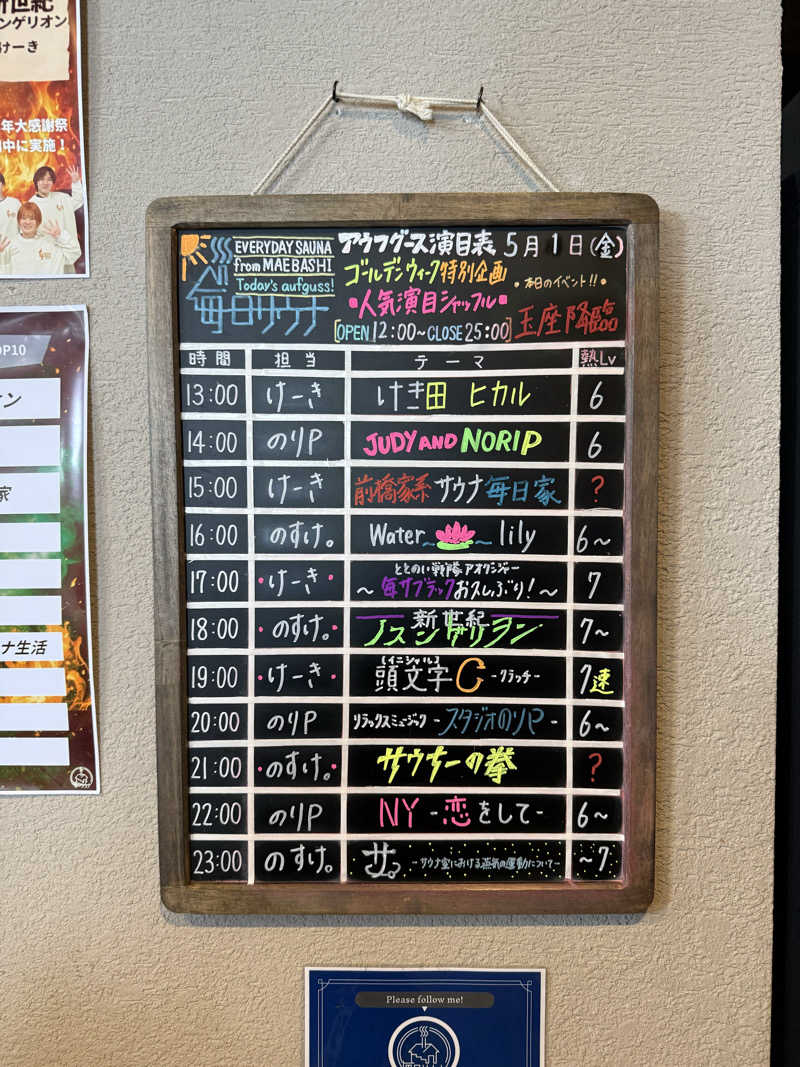 ンゲリオン
けーき
年大感謝祭
中に実施！
EVERYDAY SAUNA
from MAEBASHI
Today's aufguss!
毎日サウナ
アウフグース演目表 5月1日(金)
ゴールデンウィーク特別企画
・本日のイベント!!・
・人気演目シャッフル・
[OPEN 12:00~CLOSE 25:00]
玉座降臨
時間 担当 テーマ 熱Lv
13:00 けーき けき田 ヒカル 6
14:00 のりP JUDY AND NORIP 6
15:00 けーき 前橋家系サウナ毎日家 ?
16:00 のすけ。 Water~ ~lily 6~
17:00 ・けーき・ ととのい戦隊アオグンジャー ～毎サブラックおひさしぶり！～ 7
18:00 ・のすけ。・ 新世紀 ノスンゲリヲン 7~
19:00 ・けーき・ 頭文字(イニシャル)C -クラッチ- 7速
20:00 のりP リラックスミュージック -スタジオのりP- 6~
21:00 ・のすけ。・ サウナーの拳 ?
22:00 のりP NY -恋をして- 6~
23:00 のすけ。 サ。 -サウナ室における蒸気の運動について- ~7
OP10
ン
家
ナ生活
Please follow me!